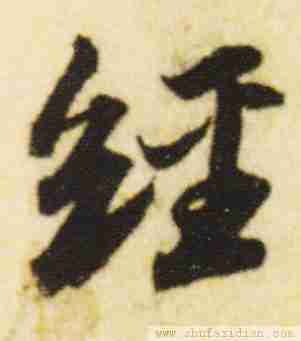 經
www.shufaxidian.com